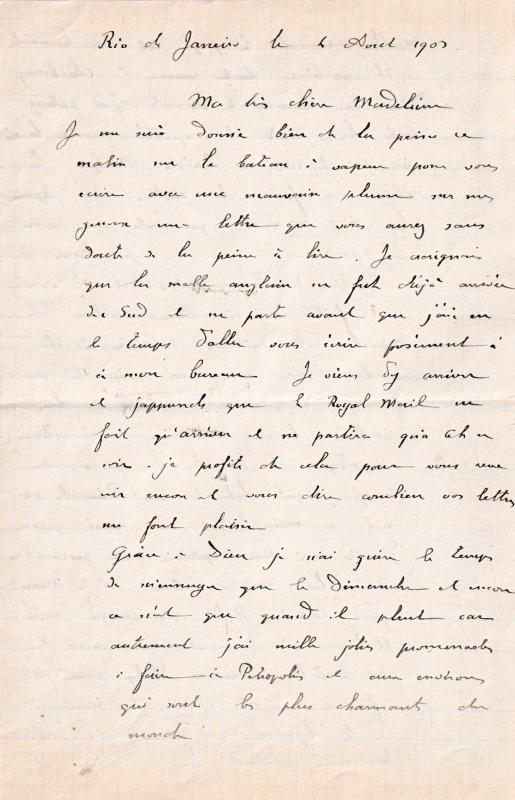 Rio de Janeiro le 6 Aout 1903
Ma très chère Madeleine
Je me suis donné bien de la peine ce
matin sur le bateau à vapeur pour vous
écrire avec une mauvaise plume sur mes
genoux une lettre que vous aurez sans
doute de la peine à lire. Je craignais
que la malle anglaise ne fut déjà arrivée
du Sud et ne parte avant que j'aie eu
le temps d'aller vous écrire posément à
à mon bureau Je viens d'y arriver
et j'apprends que le Royal Mail ne
fait qu'arriver et ne partira qu'à 6h ce
soir. je profite de cela pour vous
encore et vous dire combien vos lettres
me font plaisir
Grâce à Dieu je n'ai guère le temps
de m'ennuyer que le Dimanche et encore
ce n'est que quand il pleut car
autrement j'ai mille jolies promenades
à faire à Petropolis et aux environs
qui sont les plus charmants du
monde